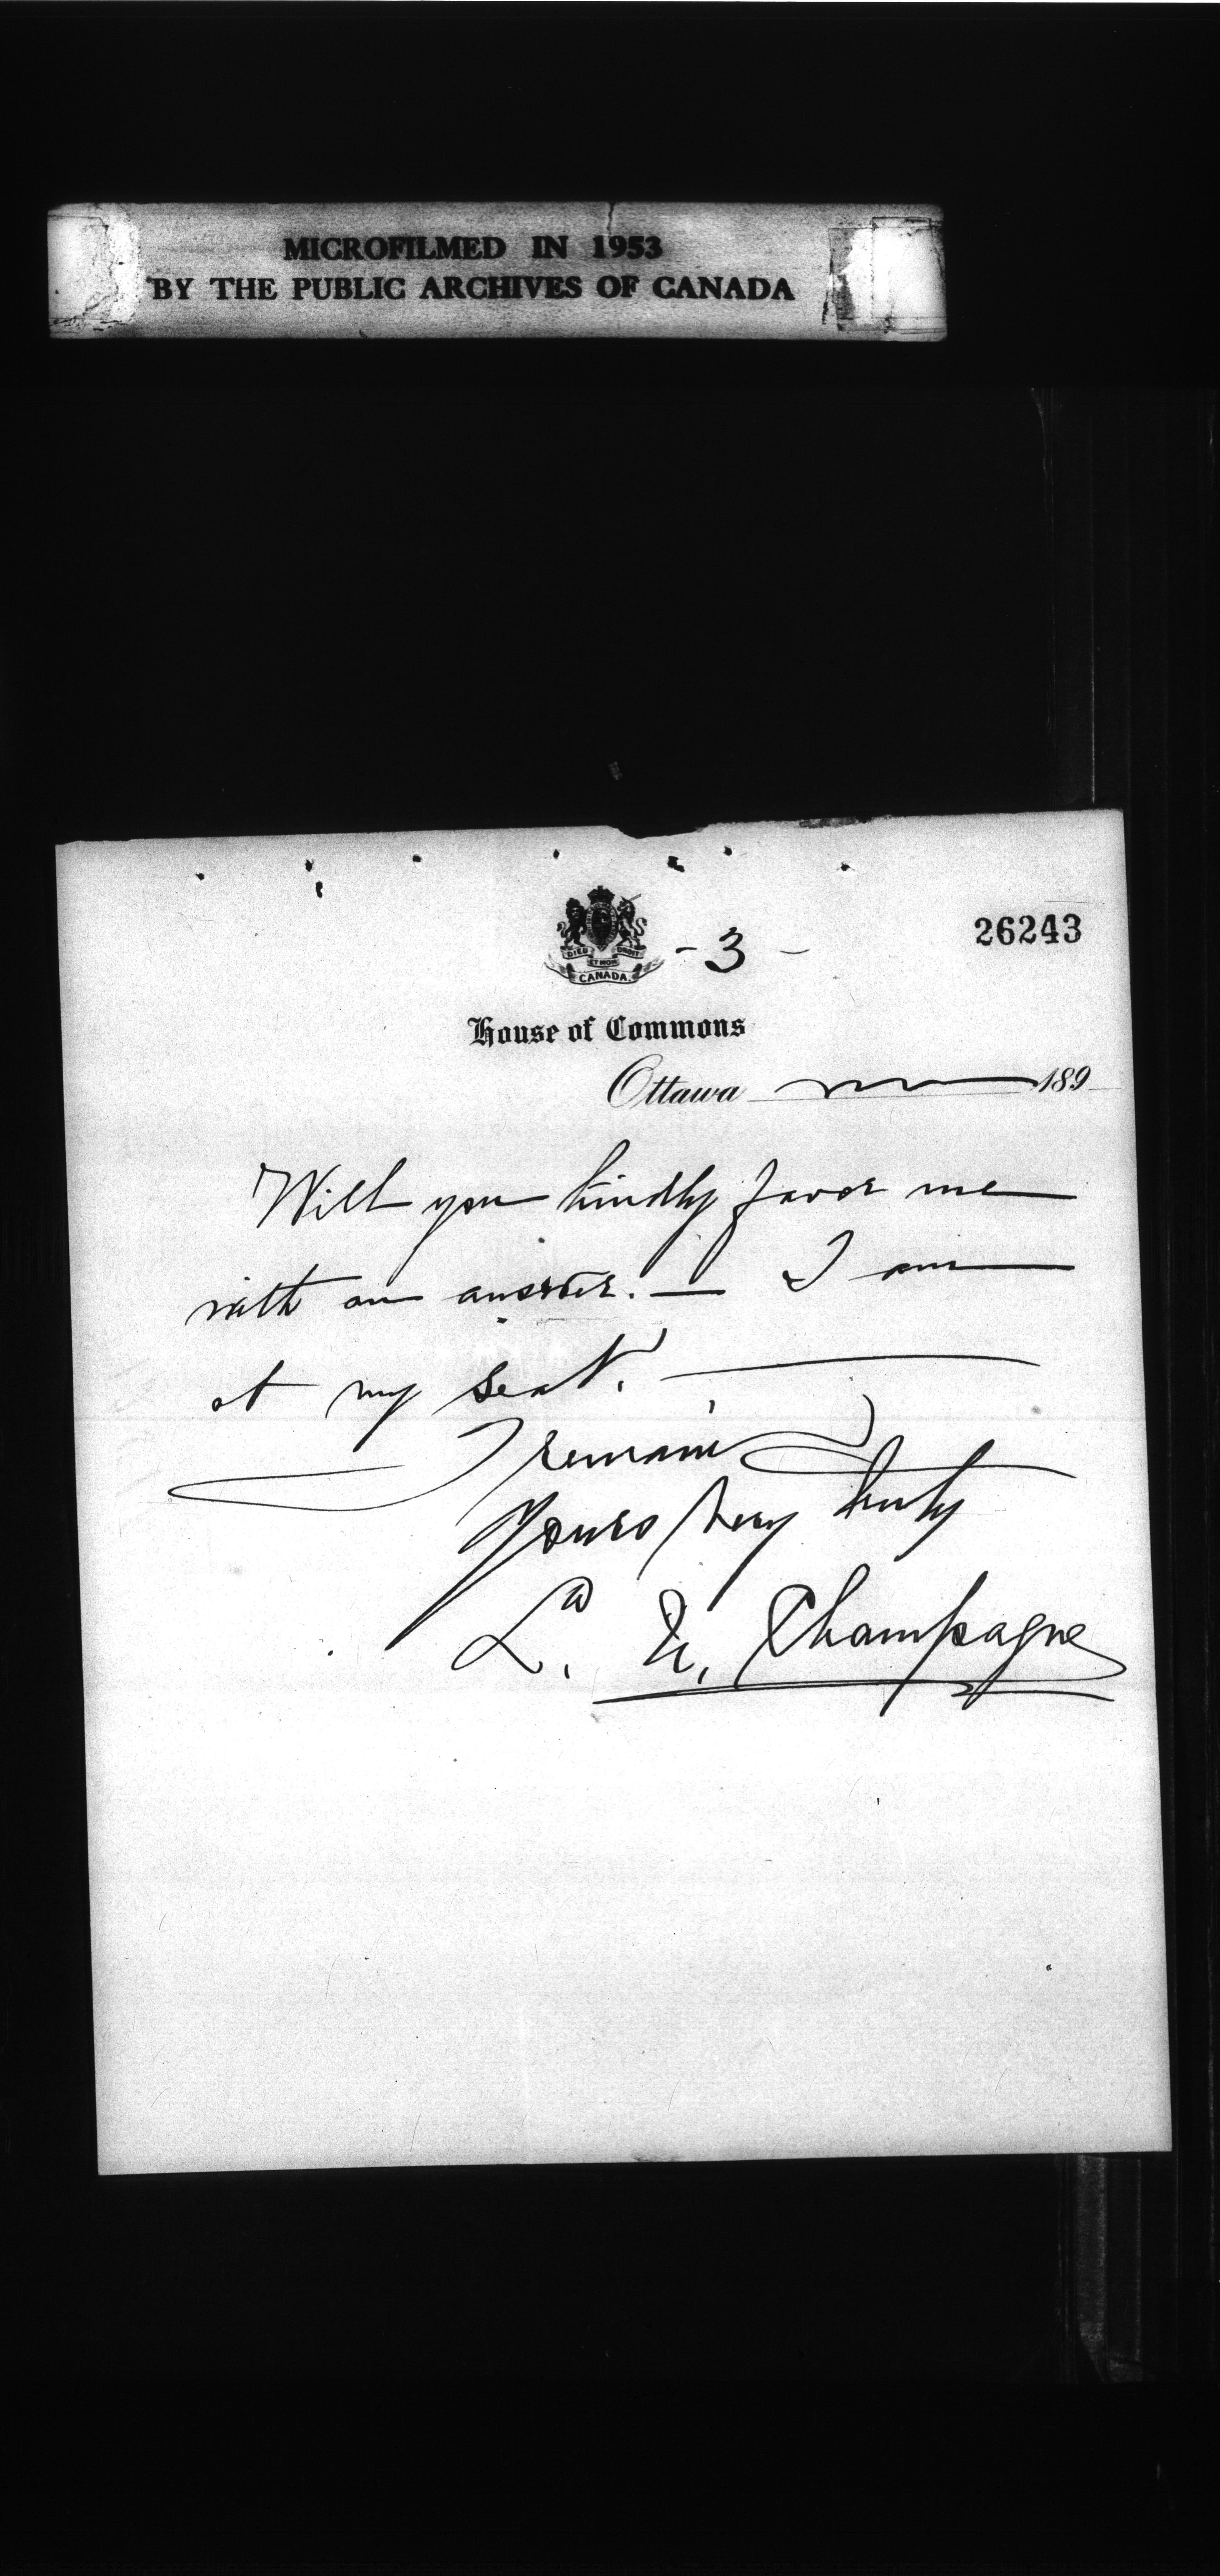 MICROFILMED IN 1953
BY THE PUBLIC ARCHIVES OF CANADA
DIEU ET MON DROIT
CANADA.
- 3 -
26243
House of Commons
Ottawa 189
Will you kindly favor me
with an answer. — I am
at my seat. —
I remain
Yours very truly
L. N. Champagne